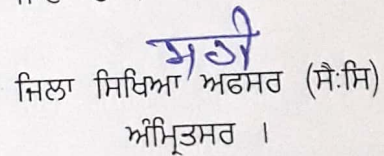 ਸਹੀ
ਜਿਲਾ ਸਿਖਿਆ ਅਫਸਰ (ਸੈ:ਸਿ)
ਅੰਮ੍ਰਿਤਸਰ ।